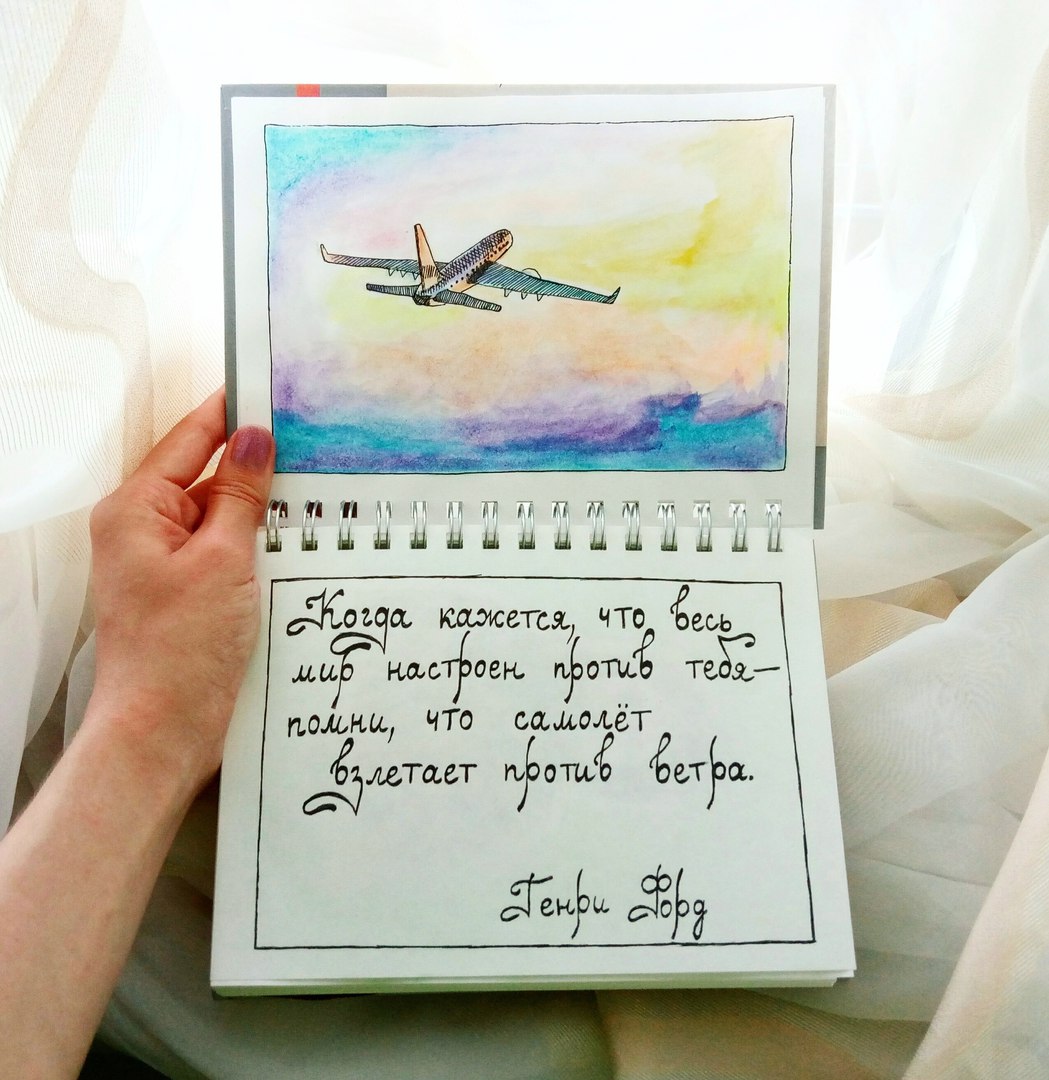 Когда кажется, что весь
мир настроен против тебя—
помни, что самолёт
взлетает против ветра.
Генри Форд